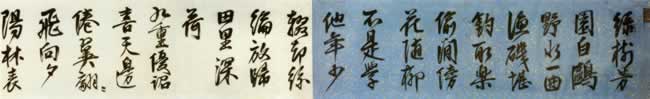 綠樹芳
園白鷗
野水一曲
漁磯堪
釣取樂
偷閒傍
花隨柳
不是學
他年少
輟卻絲
綸放歸
田里深
荷
九重優詔
喜天邊
倦翼翩〻
飛向夕
陽林表